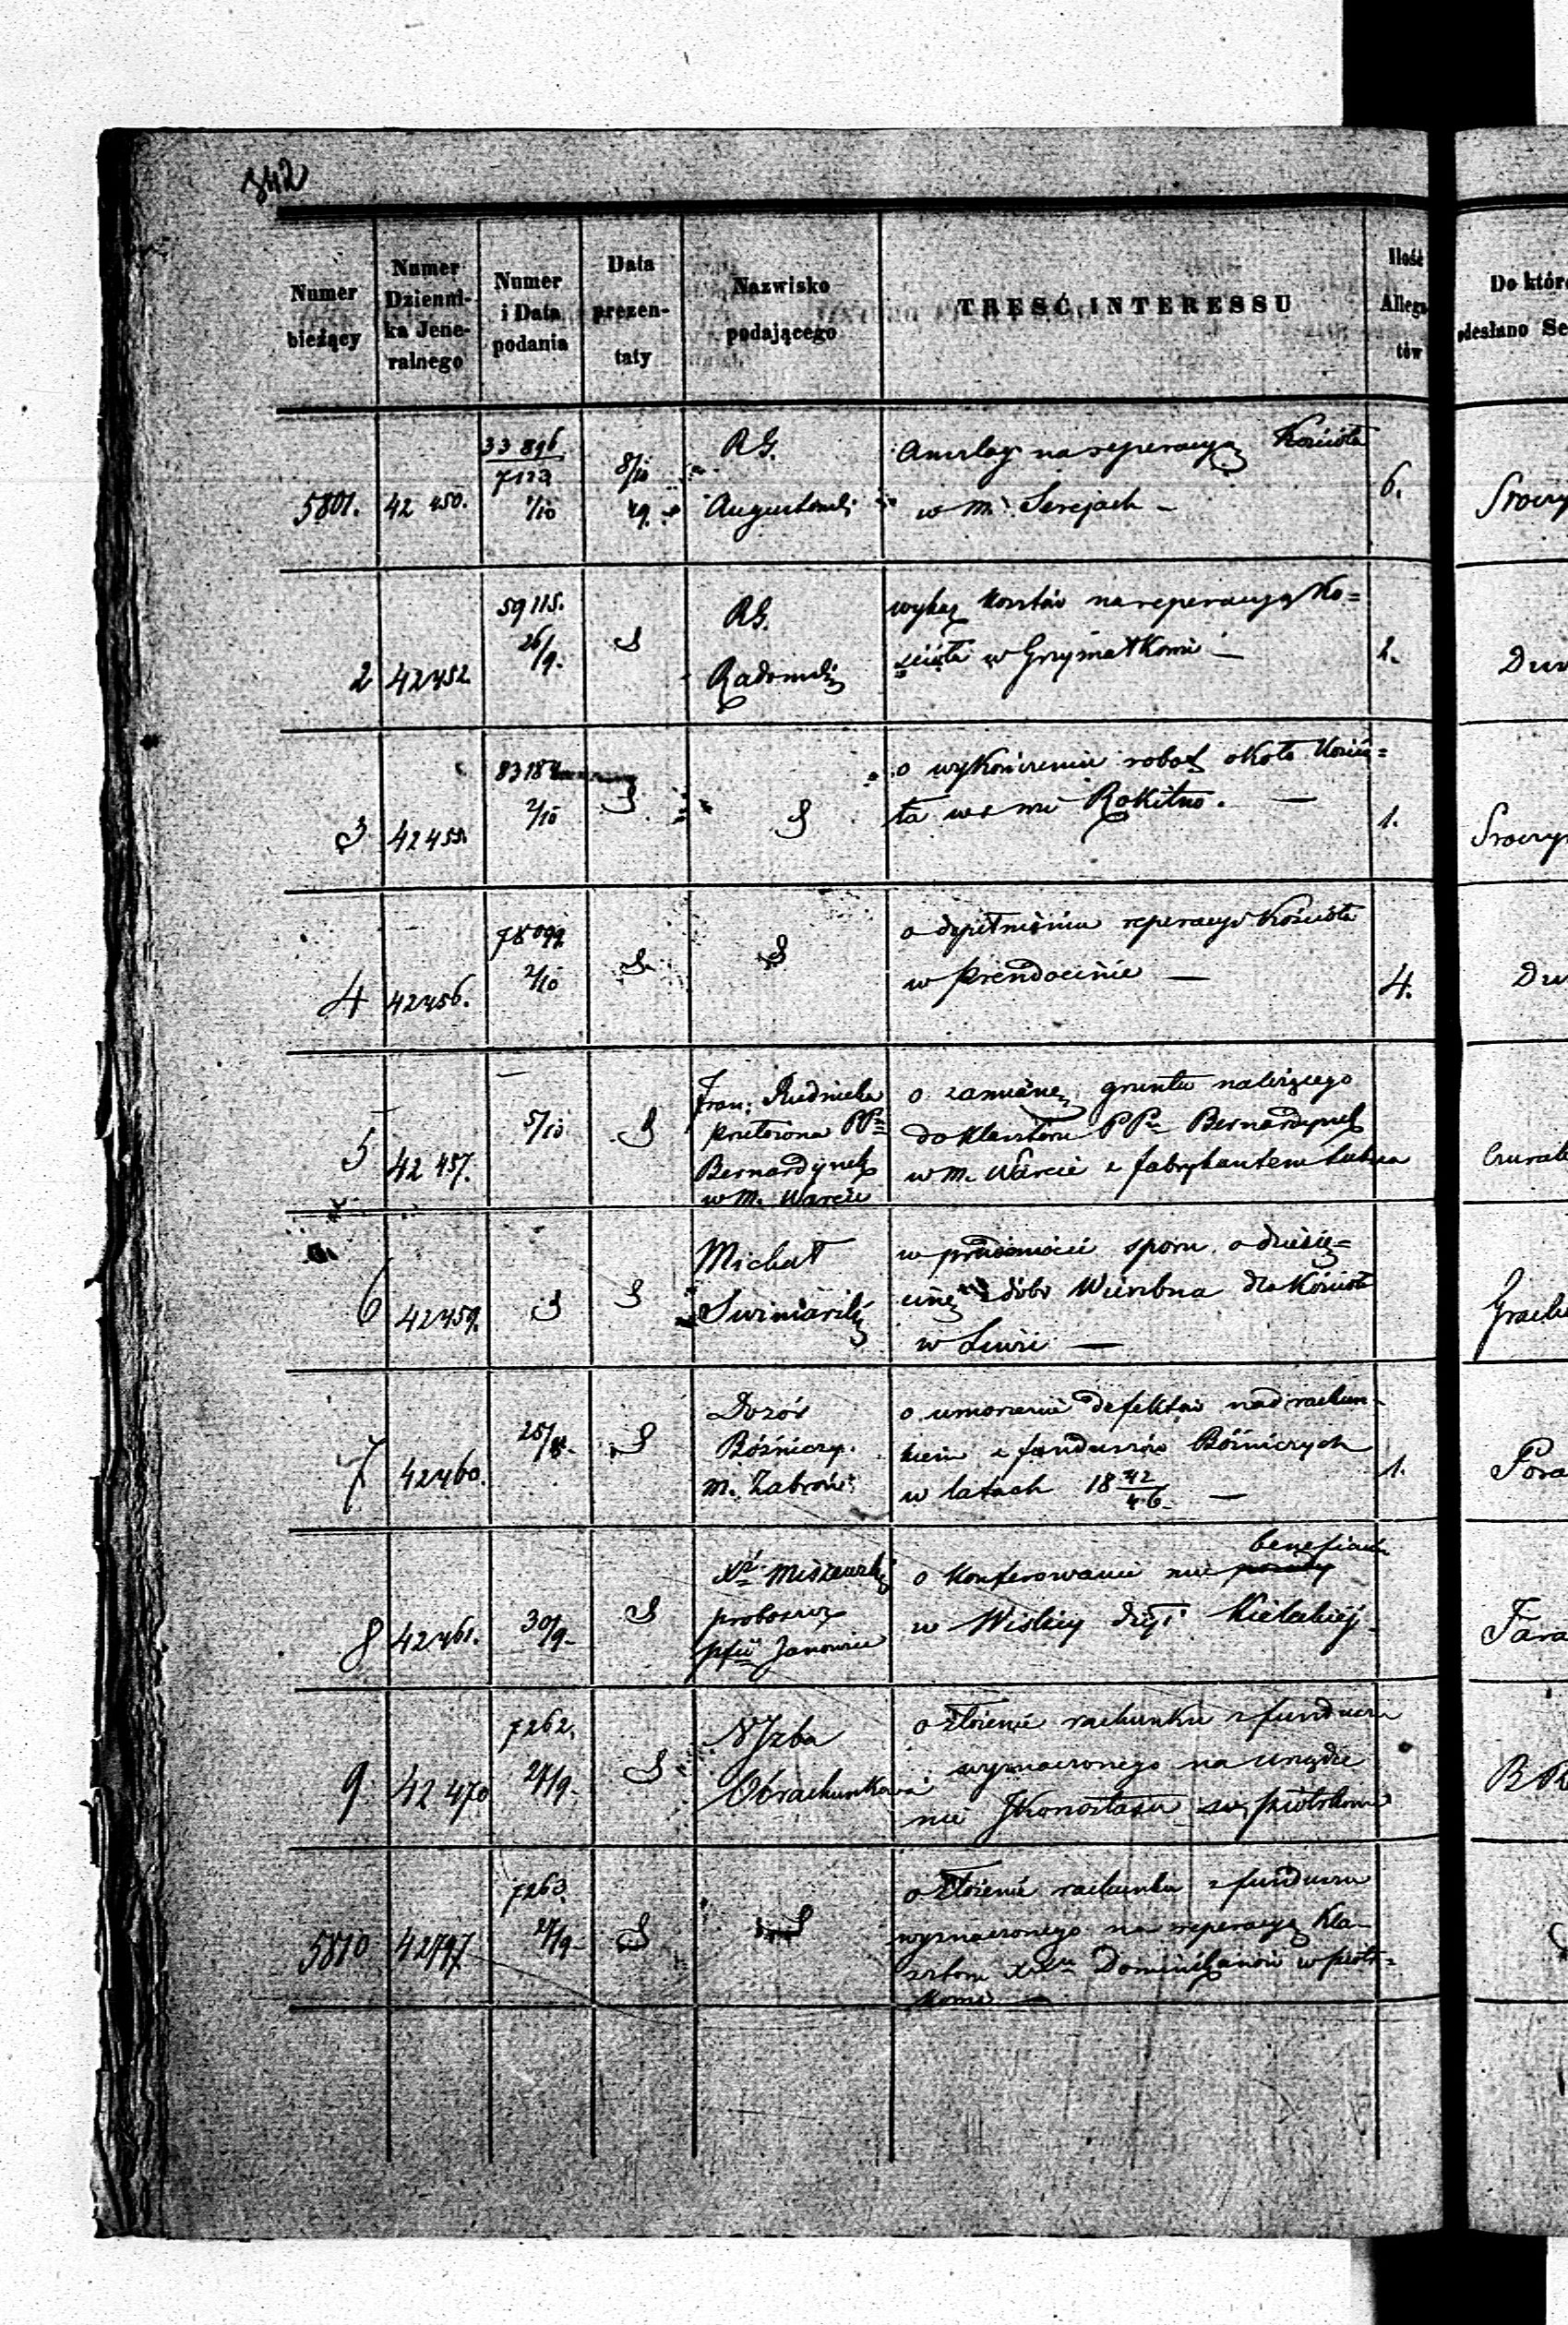 342
Numer bieżący
Numer Dziennika Jeneralnego
Numer i Data podania
Data prezentaty
Nazwisko podającego
TREŚĆ INTERESSU
Ilość Allegatów
Do któr
odesłano Se
33 896
7122
1/10
8/10
49.
R G.
Augustowski
5801.
42 450.
Anszlag na reperacyą Kościoła
w m. Serejach –
6.
59115.
26/9.
R G.
Radomski
2
42452
wykaz kosztów na reperacyą Ko=
ścioła w Grzymałkowie –
2.
83184
2/10
3
42455.
o wykończeniu robot około Kościo=
ła we wsi Rokitno. –
1.
78099
2/10
4
42456.
o dopełnieniu reperacyi Kościoła
w Prendocinie –
4.
5
42 457.
5/10
Fran: Rudnicka
przełożona PP
Bernardynek
w M. Warcie
o zamianę gruntu należącego
do Klasztoru PP Bernardynek
w M. Warcie z fabrykantem
6
42459.
Michał
Swiniarski
w przedmiocie sporu o dziesię=
cinę z dóbr Wierzbna dla Kościoła
w Liwie –
7
42460.
25/8.
Dozór
Bóźniczy
m.
o umorzenie defektów nad rachun-
kiem z funduszów Bóźniczych
w latach 18 42/46. –
1.
8
42461.
30/9.
Xd Miszewski
proboszcz
pfii Janowiec
o konferowanie mu beneficium
w Wislicy Kieleckiej
9
42 470
7262.
27/9.
N Jzba
Obrachunkowa
o złożenie rachunku z funduszu
wyznaczonego na urządze
nie Jkonostasu w Piotrkowie
5810
42497
7263.
27/9.
o złożenie rachunku z funduszu
wyznaczonego na reperacyą Kla-
sztoru Dominikanów w Piotr=
kowie –